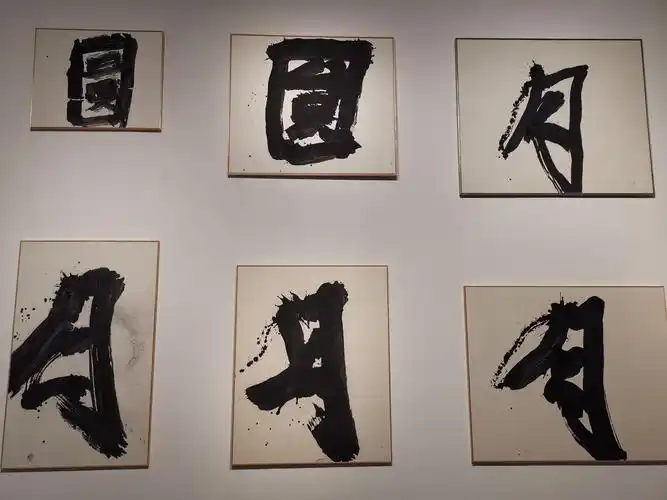 圓 圓 月
月 月 月